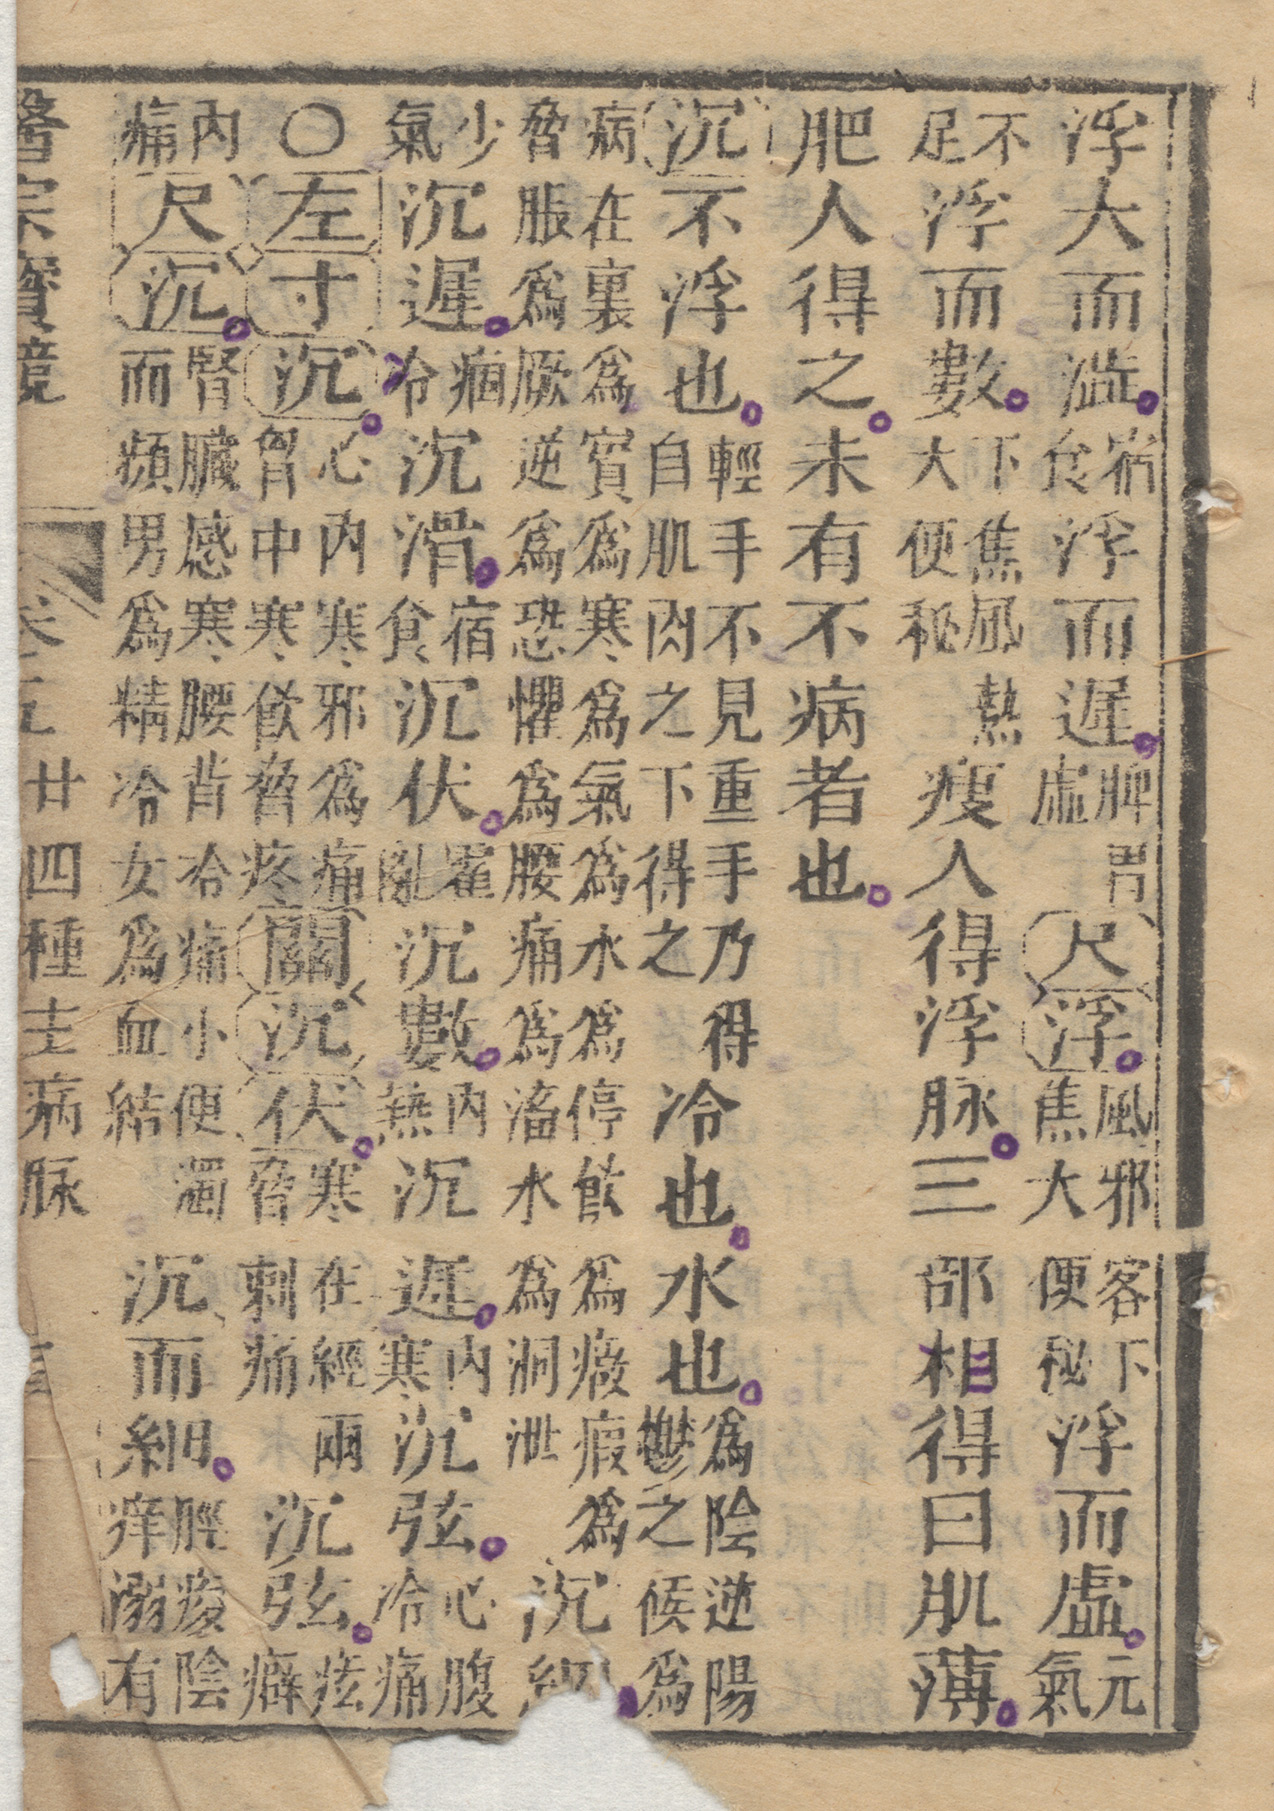 浮大而澁宿食浮而遲脾胃虛尺浮風邪客下焦大便秘浮而虛元氣
不足浮而數下焦風熱大便秘瘦人得浮脉三部相得曰肌薄
肥人得之未有不病者也
沉不浮也輕手不見重手乃得自肌肉之下得之冷也水也為陰逆陽鬱之候為
病在裏為實為寒為氣為水為停飲為癥瘕為脅脹為厥逆為恐懼為腰痛為滀水為洞泄沉
少氣沉遲痼冷沉滑宿食沉伏霍亂沉數內熱沉遲內寒沉弦心腹冷痛
〇左寸沉心內寒邪為痛胷中寒飲脅疼關沉伏寒在經兩脅刺痛沉弦痃癖
內痛尺沉腎臟感寒腰背冷痛小便濁而頻男為精冷女為血結沉而細脛痠陰痒溺有
醫宗寶鏡 卷 廿四種主病脉